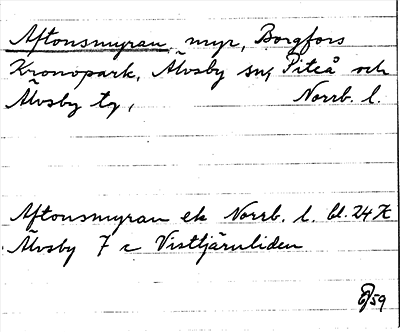 Aftonsmyran, myr, Borgfors
Kronopark, Älvsby sn, Piteå och
Älvsby tg, Norrb. l.
Aftonsmyran ek Norrb. l. bl. 24 K
Älvsby 7 c Visttjärnliden
59